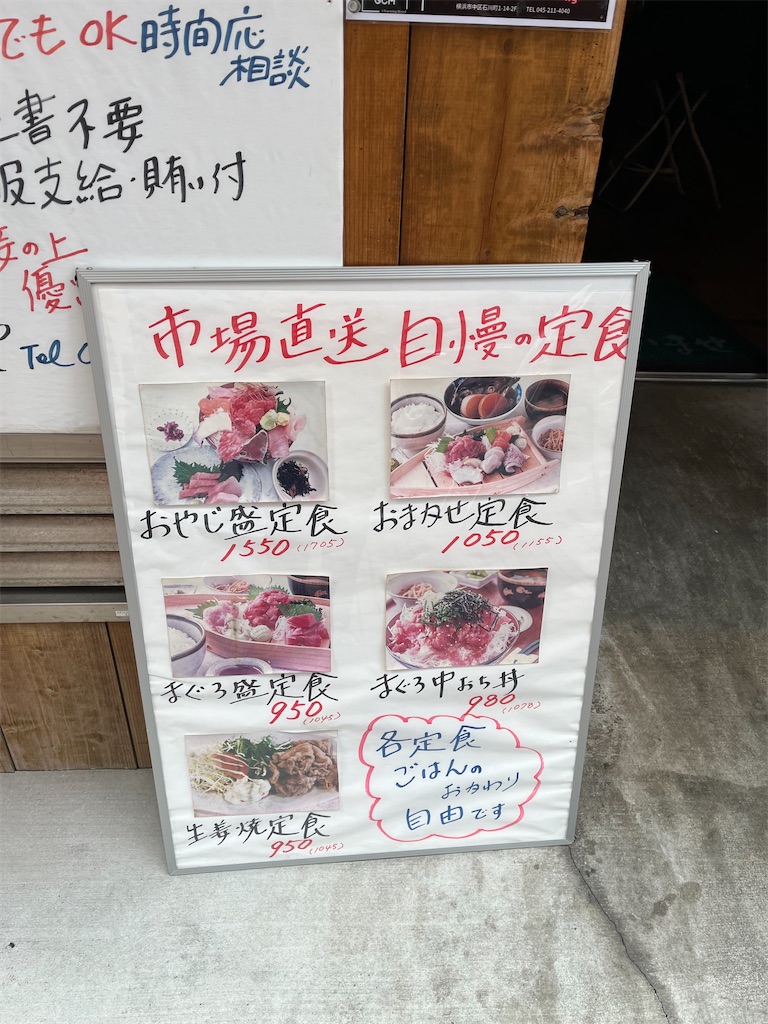 GCM
横浜市中区石川町1-14-2F TEL 045-211-4040
でもOK 時間応
相談
書不要
支給・賄い付
の上
優
Tel
市場直送 自慢の定食
おやじ盛定食
1550 (1705)
おまかせ定食
1050 (1155)
まぐろ盛定食
950 (1045)
まぐろ中おち丼
980 (1078)
生姜焼定食
950 (1045)
各定食
ごはんの
おかわり
自由です